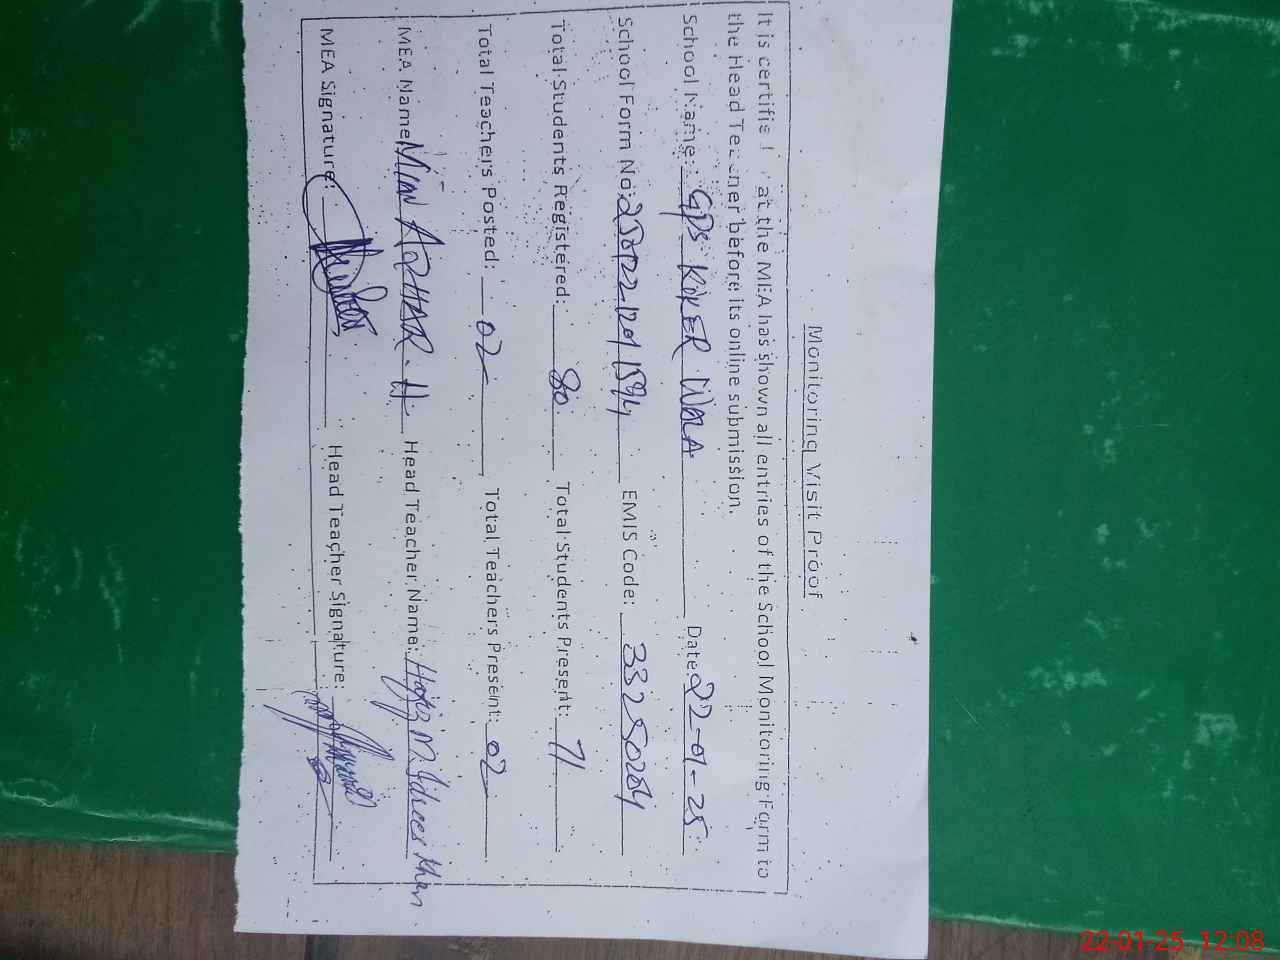 Monitoring Visit Proof
It is certified that the MEA has shown all entries of the School Monitoring Form to
the Head Teacher before its online submission.
School Name: GPS KIKER WALA Date 22-01-25
School Form No: EMIS Code: 33250264
Total Students Registered: 80 Total Students Present: 71
Total Teachers Posted: 02 Total Teachers Present: 02
MEA Name Mian AZHAR. H Head Teacher Name: Hafiz M. Idrees Khan
MEA Signature: Head Teacher Signature:
22-01-25 12:08